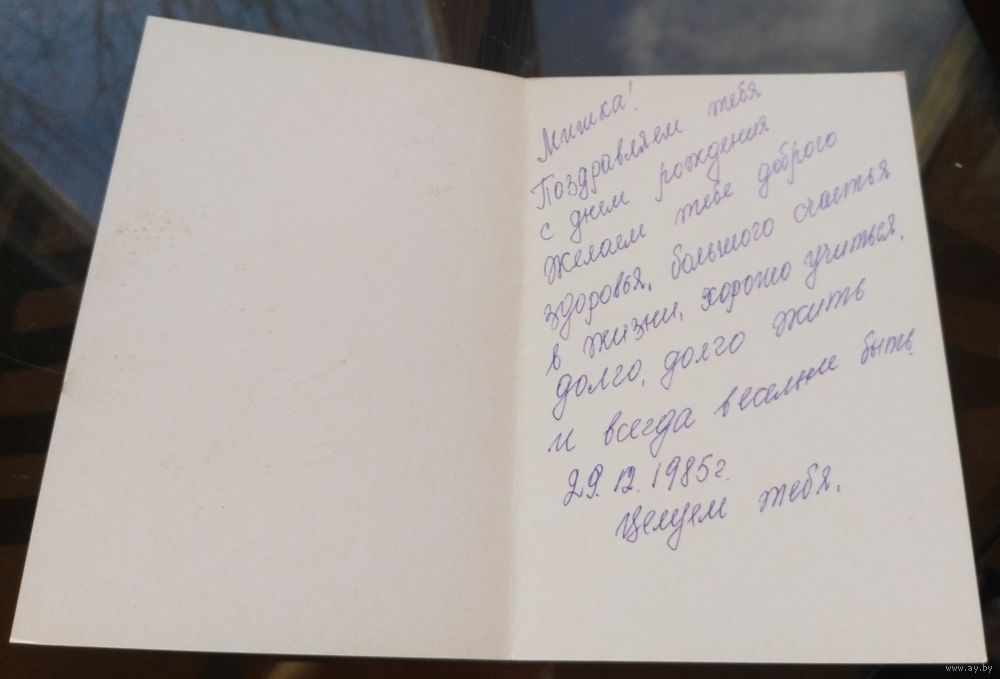 Мишка!
Поздравляем тебя
с днем рождения
Желаем тебе доброго
здоровья, большого счастья
в жизни, хорошо учиться,
долго, долго жить
и всегда веселым быть.
29.12.1985г.
Целуем тебя.
www.ay.by